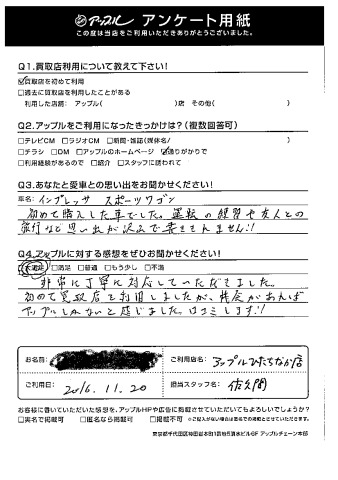 アップル アンケート用紙
この度は当店をご利用いただきありがとうございました。
Q1.買取店利用について教えて下さい!
☑買取店を初めて利用
□過去に買取店を利用したことがある
利用した店舗: アップル( )店 その他( )
Q2.アップルをご利用になったきっかけは?(複数回答可)
□テレビCM □ラジオCM □新聞・雑誌(媒体名/ )
□チラシ □DM □アップルのホームページ ☑通りがかりで
□利用経験があるので □紹介 □スタッフに誘われて
Q3.あなたと愛車との思い出をお聞かせください!
車名: インプレッサ スポーツワゴン
初めて購入した車でした。運転の練習や友人との
旅行など思い出が沢山で書ききれません!!
Q4.アップルに対する感想をぜひお聞かせください!
□大満足 □満足 □普通 □もう少し □不満
非常に丁寧に対応していただきました。
初めて買取店を利用しましたが、機会があれば
アップルしかないと感じました。口コミします!!
お名前: ご利用店名: アップルひたちなか店
ご利用日: 2016.11.20 担当スタッフ名: 佐久間
お客様に書いていただいた感想を、アップルHPや広告に掲載させていただいてもよろしいでしょうか?
□実名で掲載可 □匿名なら掲載可 □掲載不可